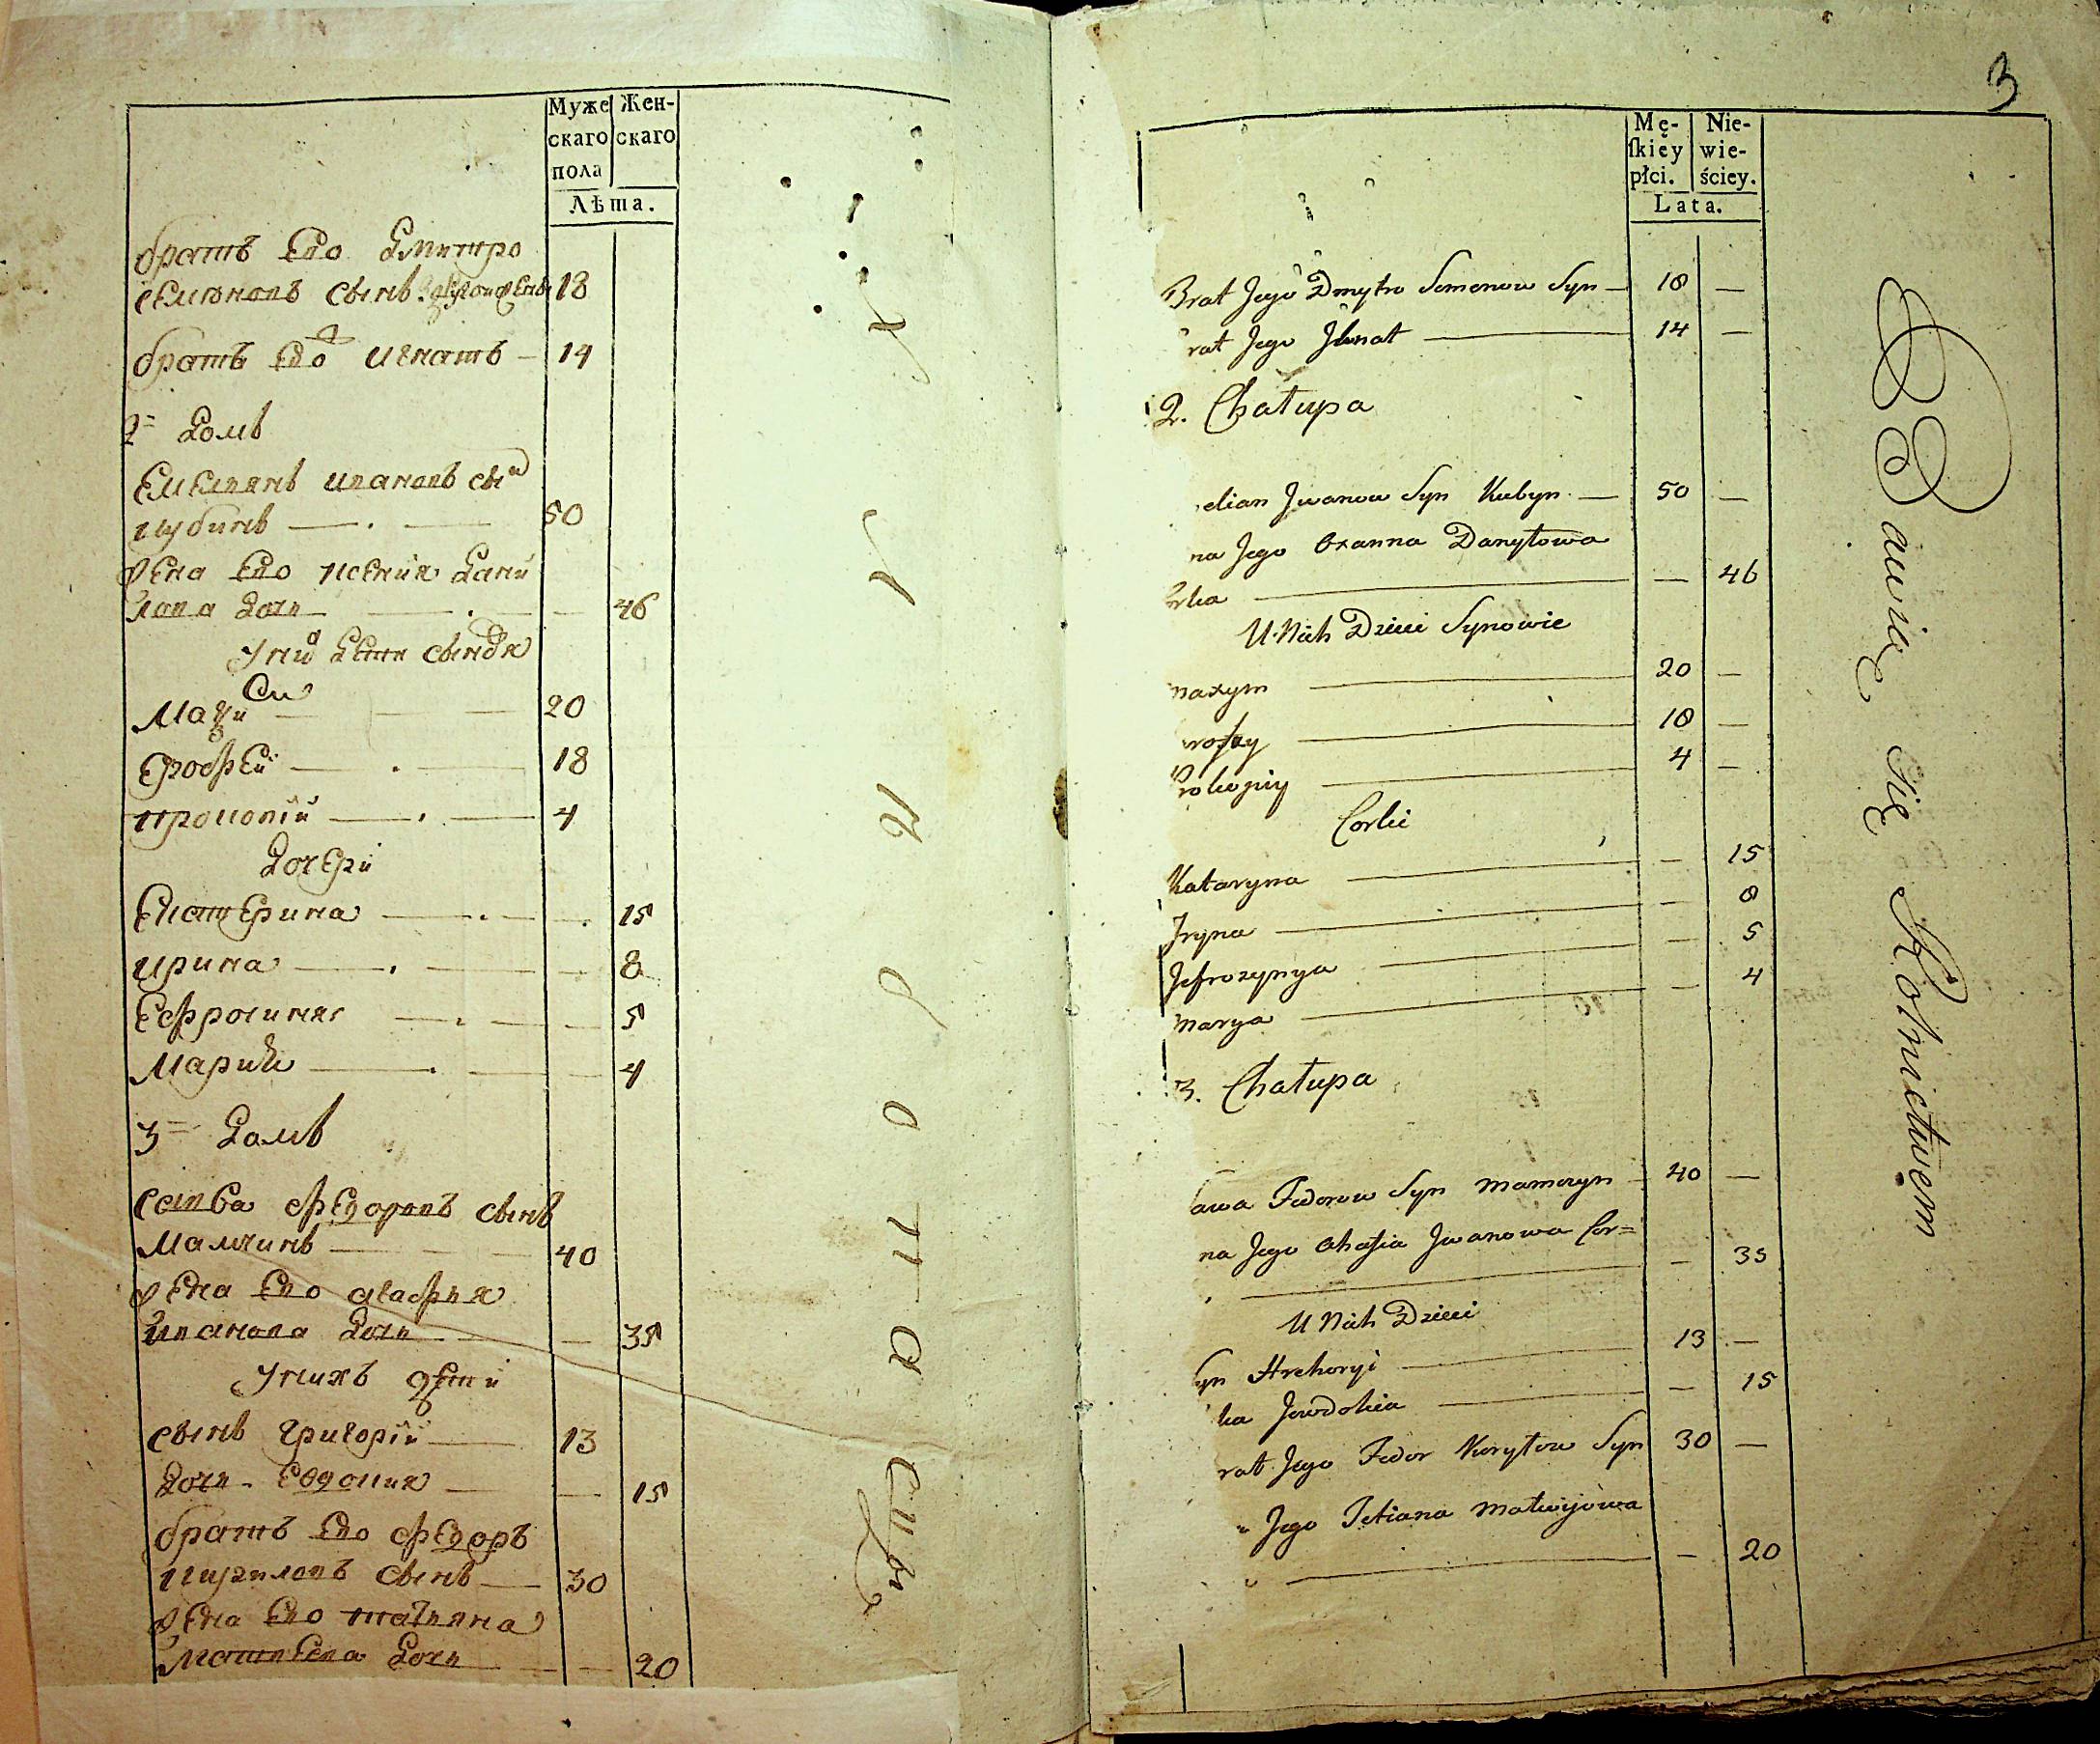 Муже
скаго
пола
Жен-
скаго
Лѣта.
братъ Ево Дмитро
семионовъ сынъ 18
братъ Ево Игнатъ — 14
2= Домъ
Емельянъ Ивановъ сын
кубинъ — 50
жена Ево Дани
лова дочь — 46
У них дети сыновя
Макси — 20
Ерофей — 18
прокопій — 4
дочери
Екатерина — 15
ирина — 8
Еефросиния — 5
Мария — 4
3= Домъ
савва Федоровъ сынъ
Мамчинъ — 40
жена Ево агафия
иванова дочь — 35
Унихъ дети
сынъ григорій — 13
дочь Евдокия — 15
братъ Ево Федоръ
кириловъ сынъ — 30
жена Ево татьяна
матвеева дочь — 20
3
Mę-
ſkiey
płci.
Nie-
wie-
ściey.
Lata.
Brat Jego Dmytro Semenow Syn — 18 —
rat Jego Jhnat — 14 —
2. Chałupa
elian Jwanow Syn Kubyn — 50 —
na Jego Oxanna Danyłowa
orka — — 46
U Nich Dzieci Synowie
maxym — 20 —
18 —
rokopiy — 4 —
Corki
Kataryna — — 15
Jryna — — 8
Jefrozynya — — 5
marya — — 4
3. Chałupa
awa Fedorow Syn mamczyn — 40 —
na Jego Ahafia Jwanowa Cor=
— — 35
U Nich Dzieci
yn Hrehoryi — 13 —
ka Jewdokia — — 15
rat Jego Fedor Kiryłow Syn 30 —
Jego Tetiana matwijowa
— — 20
Bawią się Rolnictwem